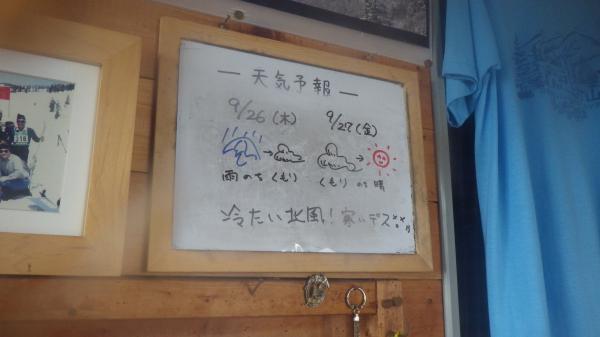 天気予報
9/26(木) 9/27(金)
雨のちくもり くもりのち晴
冷たい北風!寒いデス